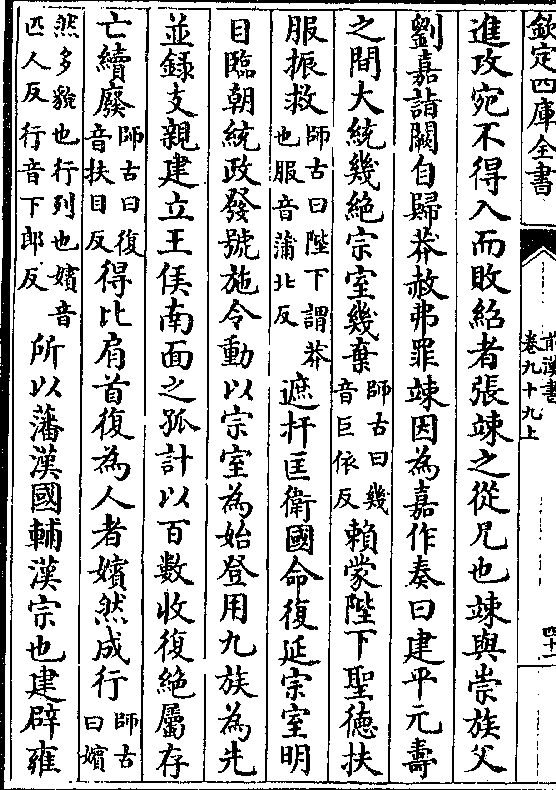 欽定四庫全書
前漢書
卷九十九上
四十一
進攻宛不得入而敗紹者張竦之從兄也竦與崇族父
劉嘉詣闕自歸莽赦弗罪竦因為嘉作奏曰建平元壽
之間大統幾絶宗室幾棄
師古曰幾
音巨依反
賴蒙陛下聖徳扶
服振救
師古曰陛下謂莽
也服音蒲北反
遮扞匡衛國命復延宗室明
目臨朝統政發號施令動以宗室為始登用九族為先
並録支親建立王侯南面之孤計以百數收復絶屬存
亡續廢
師古曰復
音扶目反
得比肩首復為人者嬪然成行
師古
曰嬪
然多貌也行列也嬪音
匹人反行音下郎反
所以藩漢國輔漢宗也建辟雍